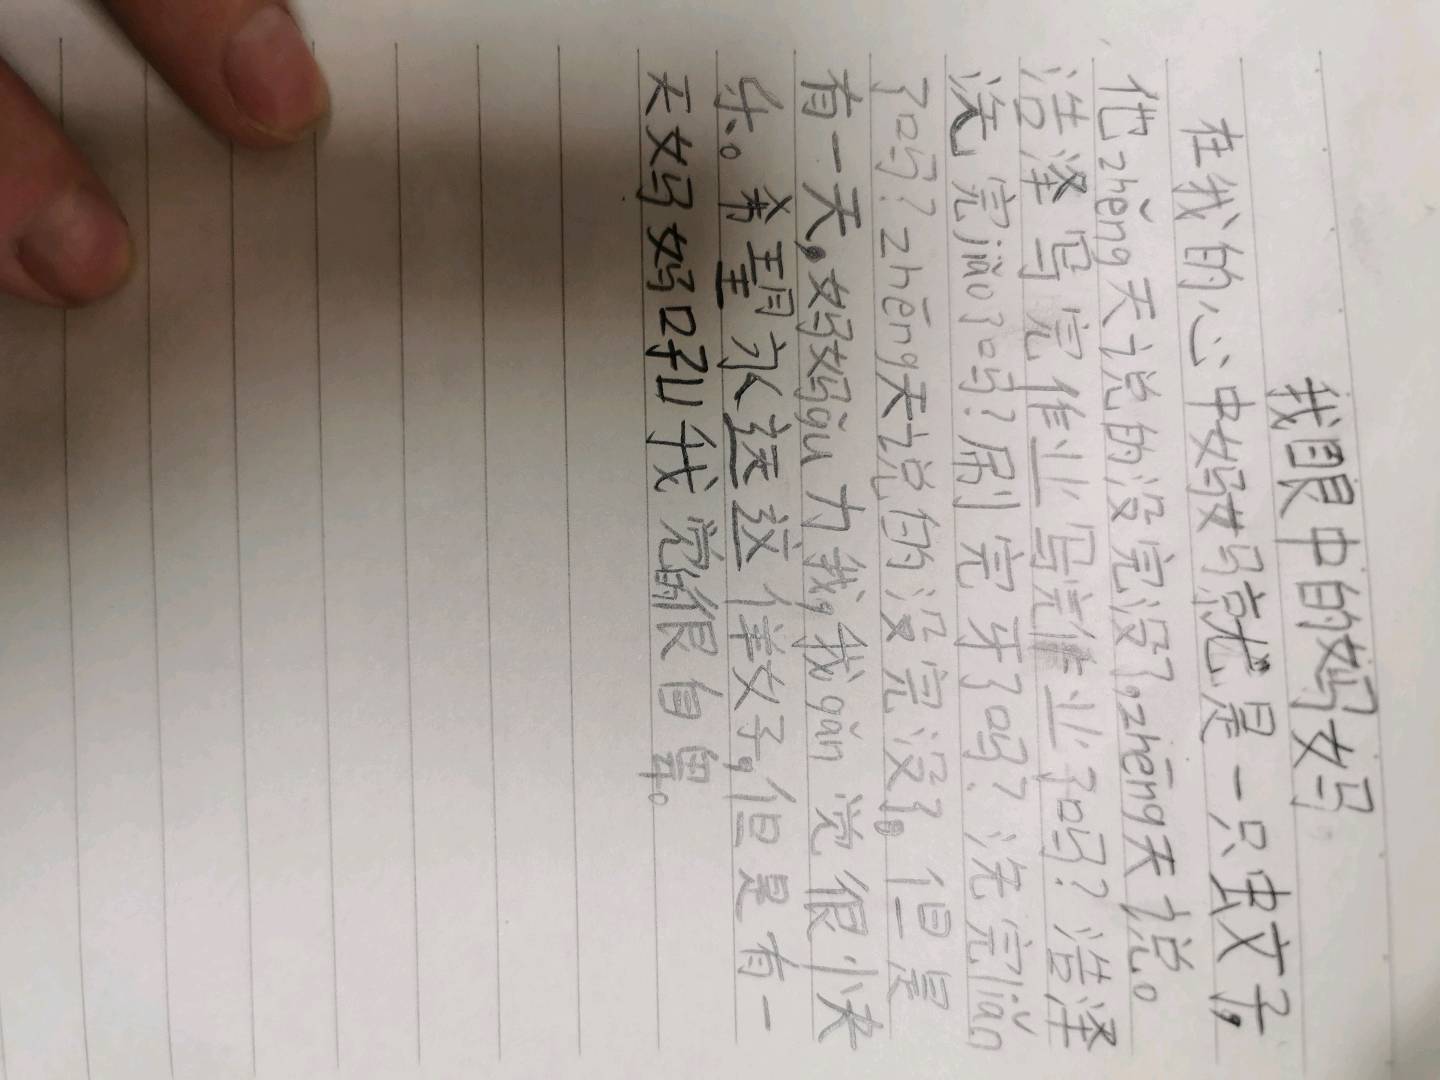 我眼中的妈妈
在我的心中妈妈就是一只蚊子,
他zhěng天说的没完没了,zhēng天说。
浩泽写完作业写完作业了吗?浩泽
洗完jiǎo了吗?刷完牙了吗?洗完liǎn
了吗?zhēng天说的没完没了。但是
有一天,妈妈gǔ力我,我gǎn觉很小夬
乐。希望永这样子,但是有一
天妈妈口孔我觉很自卑。